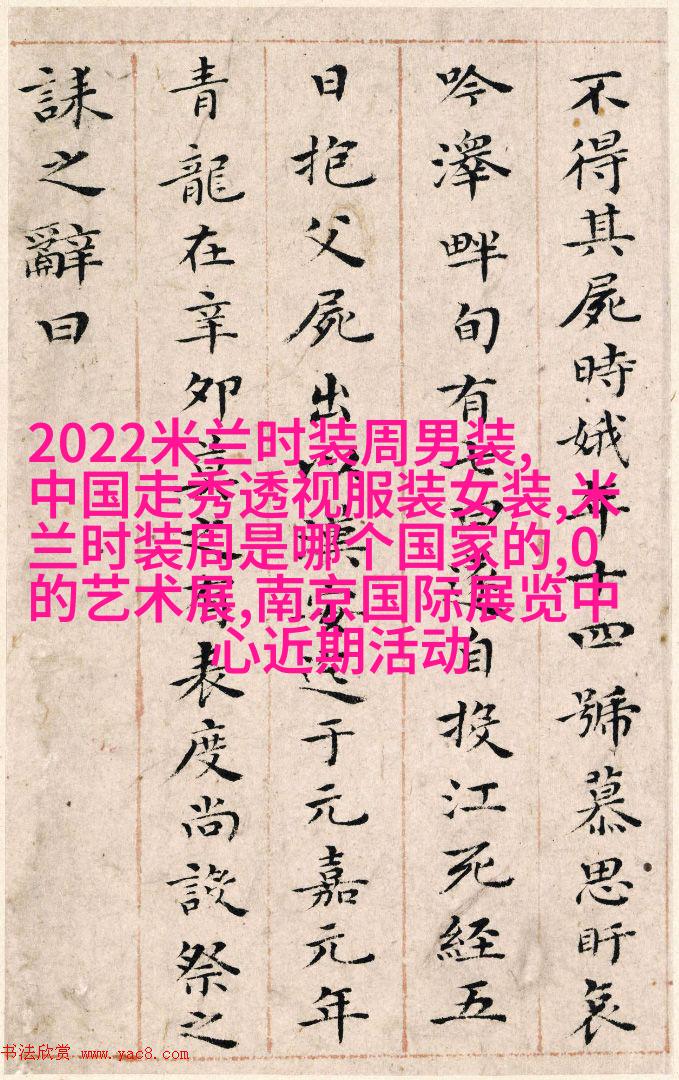 不得其屍時娥年十四號慕思盱哀
吟澤畔旬有七日遂自投江死經五
日抱父屍出以漢安迄于元嘉元年
青龍在辛卯莫之有表度尚設祭之
誄之辭曰
2022米兰时装周男装,
中国走秀透视服装女装,米
兰时装周是哪个国家的,0
的艺术展,南京国际展览中
心近期活动
书法欣赏 www.yac8.com